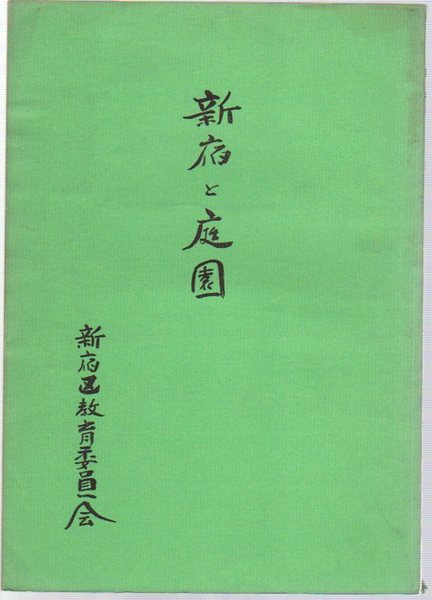 新宿と庭園
新宿区教育委員会